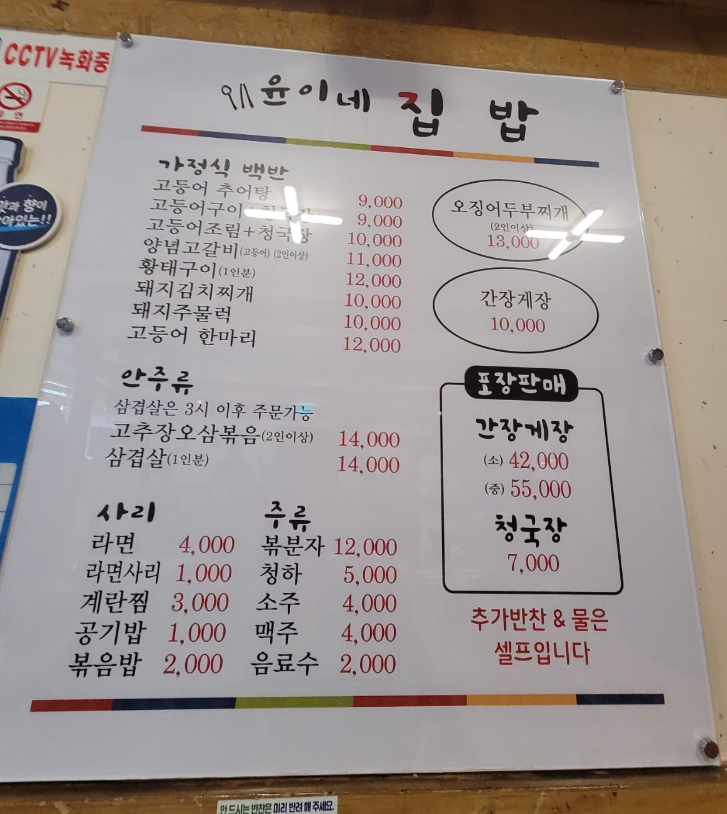 CCTV녹화중
윤이네 집 밥
가정식 백반
고등어 추어탕 9,000
고등어구이+ 9,000
고등어조림+청국장 10,000
양념고갈비(고등어)(2인이상) 11,000
황태구이(1인분) 12,000
돼지김치찌개 10,000
돼지주물럭 10,000
고등어 한마리 12,000
오징어두부찌개
(2인이상)
13,000
간장게장
10,000
안주류
삼겹살은 3시 이후 주문가능
고추장오삼볶음(2인이상) 14,000
삼겹살(1인분) 14,000
포장판매
간장게장
(소) 42,000
(중) 55,000
청국장
7,000
사리
라면 4,000
라면사리 1,000
계란찜 3,000
공기밥 1,000
볶음밥 2,000
주류
볶분자 12,000
청하 5,000
소주 4,000
맥주 4,000
음료수 2,000
추가반찬 & 물은
셀프입니다
안 드시는 반찬은 미리 반려 해 주세요.